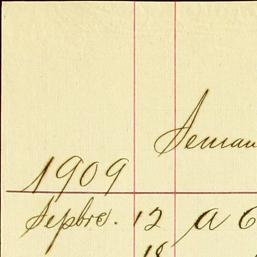 Seman
1909
Sepbre. 12 A C
18